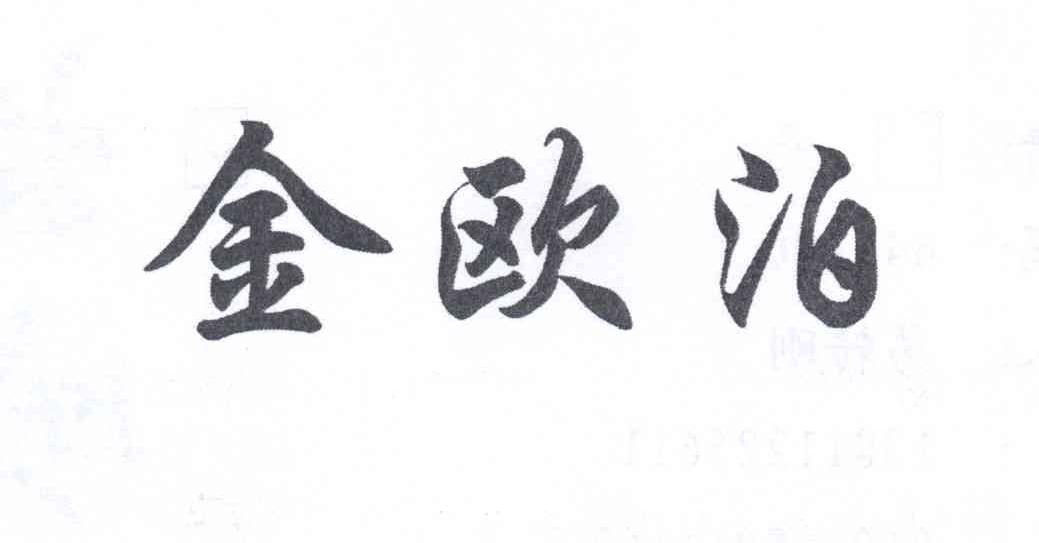 金欧泊